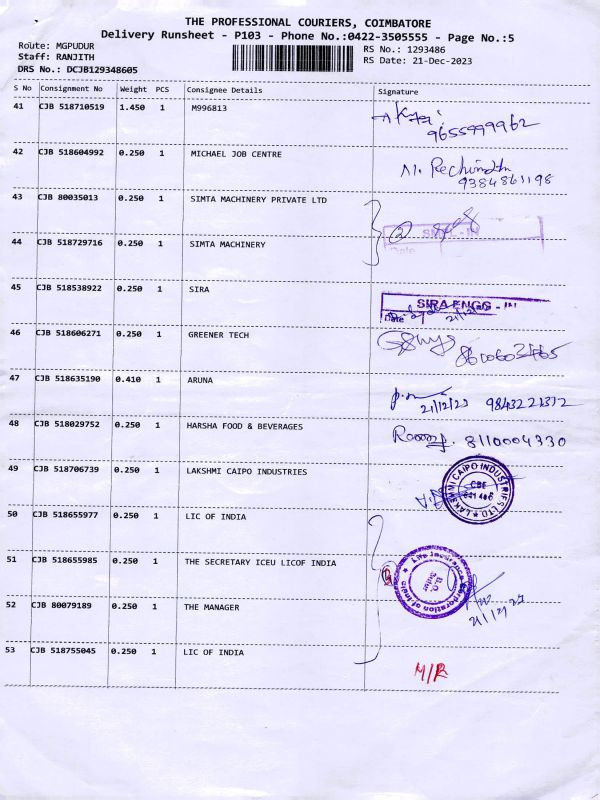 THE PROFESSIONAL COURIERS, COIMBATORE
Delivery Runsheet - P103 - Phone No.:0422-3505555 - Page No.:5
Route: MGPUDUR
Staff: RANJITH
DRS No.: DCJB129348605
RS No.: 1293486
RS Date: 21-Dec-2023
S No Consignment No Weight PCS Consignee Details Signature
41 CJB 518710519 1.450 1 M996813
9655999962
42 CJB 518604992 0.250 1 MICHAEL JOB CENTRE
9384861198
43 CJB 80035013 0.250 1 SIMTA MACHINERY PRIVATE LTD
44 CJB 518729716 0.250 1 SIMTA MACHINERY
45 CJB 518538922 0.250 1 SIRA
SIRA ENGG - IN
46 CJB 518606271 0.250 1 GREENER TECH
47 CJB 518635190 0.410 1 ARUNA
21/12/23 9843221312
48 CJB 518029752 0.250 1 HARSHA FOOD & BEVERAGES
8110004330
49 CJB 518706739 0.250 1 LAKSHMI CAIPO INDUSTRIES
LAKSHMI CAIPO INDUSTRIES LTD
CBE
50 CJB 518655977 0.250 1 LIC OF INDIA
51 CJB 518655985 0.250 1 THE SECRETARY ICEU LICOF INDIA
Life Insurance Corporation of India
B.O.
52 CJB 80079189 0.250 1 THE MANAGER
21/12/23
53 CJB 518755045 0.250 1 LIC OF INDIA
M/R